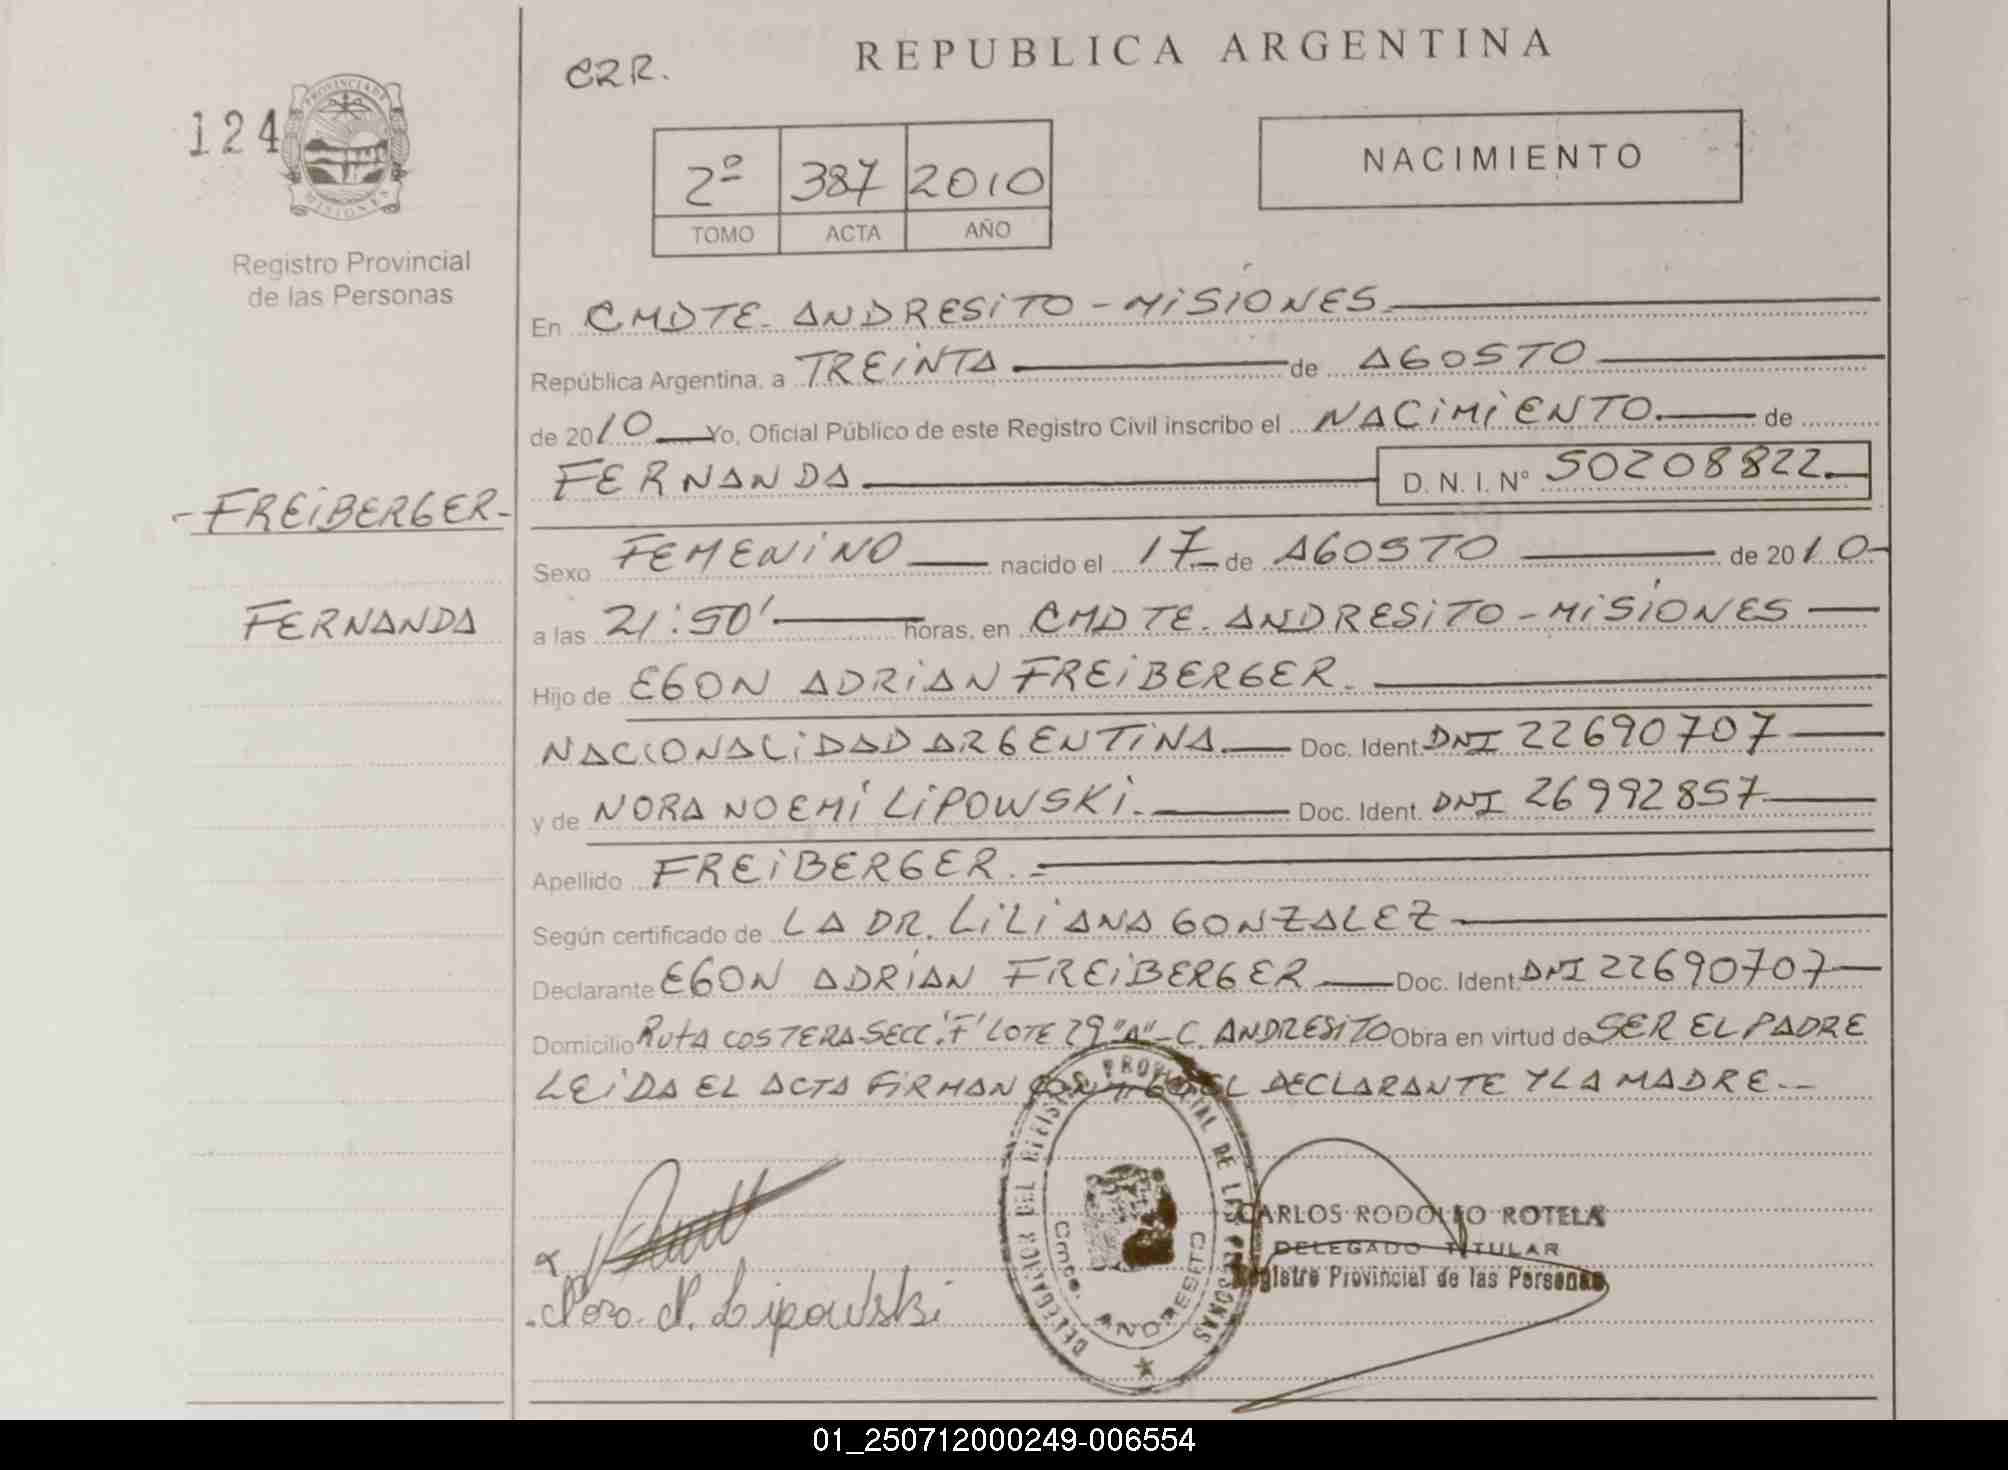 REPUBLICA ARGENTINA
CRR.
124
PROVINCIA DE
MISIONES
Registro Provincial
de las Personas
2º 387 2010
TOMO ACTA AÑO
NACIMIENTO
En CMDTE. ANDRESITO - MISIONES
República Argentina, a TREINTA de AGOSTO
de 2010 Yo, Oficial Público de este Registro Civil inscribo el NACIMIENTO de
FERNANDA D. N. I. Nº 50208822
- FREIBERGER -
Sexo FEMENINO nacido el 17 de AGOSTO de 2010
FERNANDA
a las 21:50' horas, en CMDTE. ANDRESITO - MISIONES
Hijo de EGON ADRIAN FREIBERGER.
NACIONALIDAD ARGENTINA Doc. Ident. DNI 22690707
y de NORA NOEMÍ LIPOWSKI. Doc. Ident. DNI 26992857
Apellido FREIBERGER.
Según certificado de LA DR. LILIANA GONZALEZ
Declarante EGON ADRIAN FREIBERGER Doc. Ident. DNI 22690707
Domicilio RUTA COSTERA-SECC.'F' LOTE 29 "A" - C. ANDRESITO Obra en virtud de SER EL PADRE
LEIDA EL ACTA FIRMAN CONMIGO EL DECLARANTE Y LA MADRE --
DELEGACION DEL REGISTRO PROVINCIAL DE LAS PERSONAS
Cmte. ANDRESITO
CARLOS RODOLFO ROTELA
DELEGADO TITULAR
Registro Provincial de las Personas
Nora. N. Lipowski
01_250712000249-006554